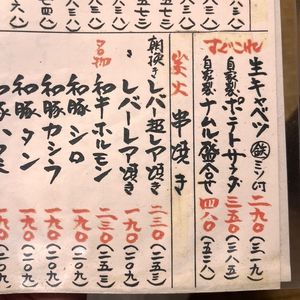 すぐこれ
生キャベツ 鉄ミソ付 二九〇(三一九)
自家製ポテトサラダ 三五〇(三八五)
自家製ナムル盛合せ 四八〇(五二八)
炭火 串焼き
朝挽きレバー超レア焼き 二三〇(二五三)
朝挽きレバーレア焼き 一九〇(二〇九)
名物 和牛ホルモン 二三〇(二五三)
和豚シロ 一九〇(二〇九)
和豚カシラ 一九〇(二〇九)
和豚タン 一九〇(二〇九)
和豚ハラミ